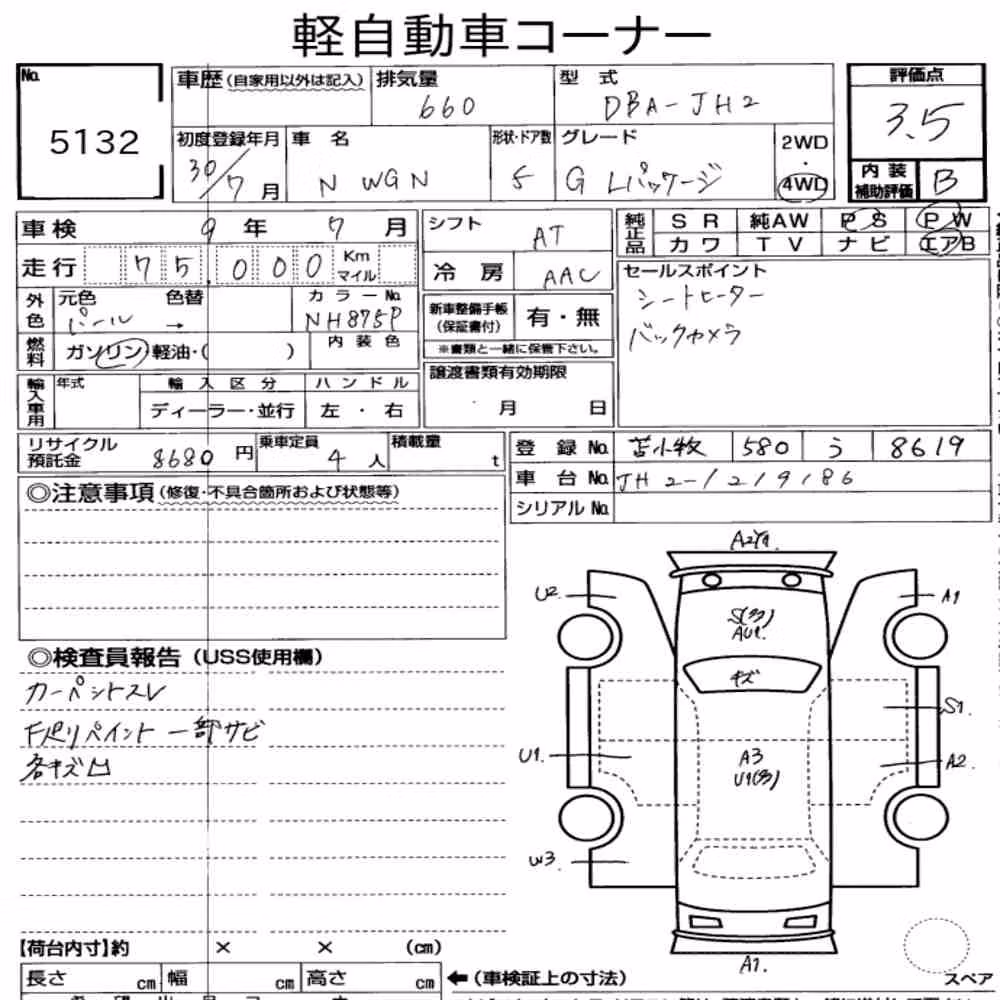 軽自動車コーナー
No. 5132
車歴(自家用以外は記入) 排気量 660 型式 DBA-JH2 評価点 3.5
初度登録年月 30/7月 車名 N WGN 形状・ドア数 5 グレード G Lパッケージ 2WD・4WD 内装補助評価 B
車検 9年 7月 シフト AT 純正品 SR 純AW PS PW
走行 75,000 Km マイル 冷房 AAC カワ TV ナビ エアB
外色 元色 パール 色替 → カラーNo. NH875P 新車整備手帳(保証書付) 有・無 セールスポイント
シートヒーター
バックカメラ
燃料 ガソリン・軽油・( ) 内装色 ※書類と一緒に保管下さい。
輸入車用 年式 輸入区分 ハンドル 譲渡書類有効期限
ディーラー・並行 左・右 月 日
リサイクル預託金 8680円 乗車定員 4人 積載量 t 登録No. 苫小牧 580 う 8619
車台No. JH2-1219186
シリアルNo.
◎注意事項(修復・不具合箇所および状態等)
◎検査員報告(USS使用欄)
カーペットスレ
下廻りペイント 一部サビ
各キズ凹
A2Y1.
U2 A1
S(多)
AU1.
キズ
S1.
U1 A3 A2.
U1(多)
W3
A1.
スペア
【荷台内寸】約 × × (cm)
長さ cm 幅 cm 高さ cm ←(車検証上の寸法)